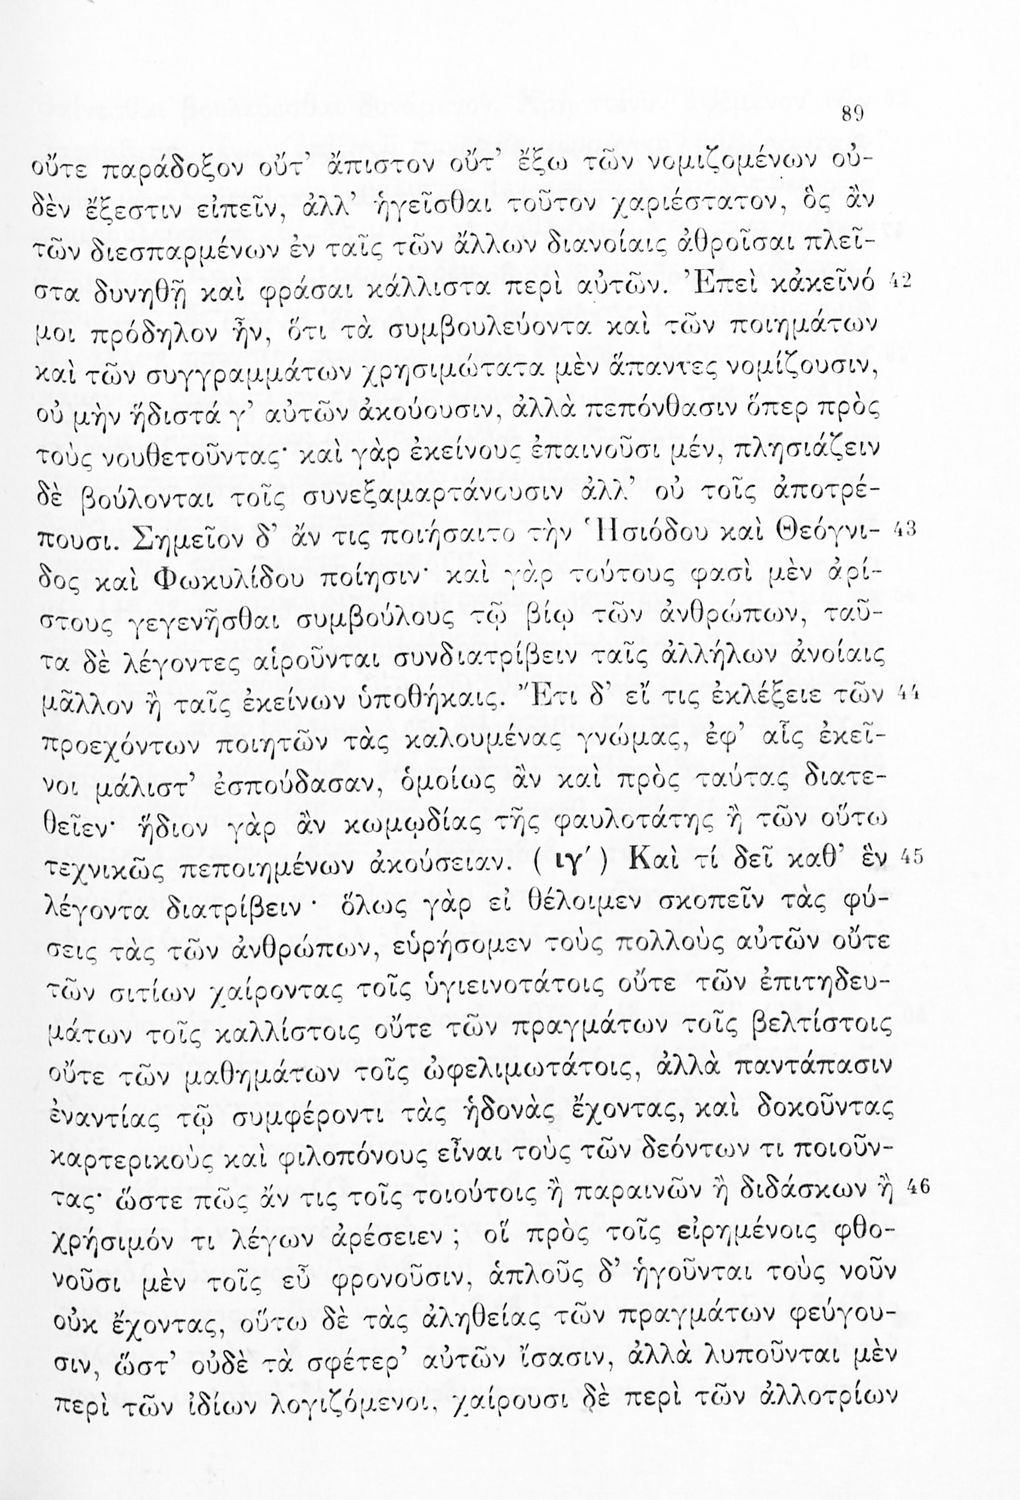 89
οὔτε παράδοξον οὔτ’ ἄπιστον οὔτ’ ἔξω τῶν νομιζομένων οὐ-
δὲν ἔξεστιν εἰπεῖν, ἀλλ’ ἡγεῖσθαι τοῦτον χαριέστατον, ὃς ἂν
τῶν διεσπαρμένων ἐν ταῖς τῶν ἄλλων διανοίαις ἀθροῖσαι πλεῖ-
στα δυνηθῇ καὶ φράσαι κάλλιστα περὶ αὐτῶν. Ἐπεὶ κἀκεῖνό 42
μοι πρόδηλον ἦν, ὅτι τὰ συμβουλεύοντα καὶ τῶν ποιημάτων
καὶ τῶν συγγραμμάτων χρησιμώτατα μὲν ἅπαντες νομίζουσιν,
οὐ μὴν ἥδιστά γ’ αὐτῶν ἀκούουσιν, ἀλλὰ πεπόνθασιν ὅπερ πρὸς
τοὺς νουθετοῦντας· καὶ γὰρ ἐκείνους ἐπαινοῦσι μέν, πλησιάζειν
δὲ βούλονται τοῖς συνεξαμαρτάνουσιν ἀλλ’ οὐ τοῖς ἀποτρέ-
πουσι. Σημεῖον δ’ ἄν τις ποιήσαιτο τὴν Ἡσιόδου καὶ Θεόγνι- 43
δος καὶ Φωκυλίδου ποίησιν· καὶ γὰρ τούτους φασὶ μὲν ἀρί-
στους γεγενῆσθαι συμβούλους τῷ βίῳ τῶν ἀνθρώπων, ταῦ-
τα δὲ λέγοντες αἱροῦνται συνδιατρίβειν ταῖς ἀλλήλων ἀνοίαις
μᾶλλον ἢ ταῖς ἐκείνων ὑποθήκαις. Ἔτι δ’ εἴ τις ἐκλέξειε τῶν 44
προεχόντων ποιητῶν τὰς καλουμένας γνώμας, ἐφ’ αἷς ἐκεῖ-
νοι μάλιστ’ ἐσπούδασαν, ὁμοίως ἂν καὶ πρὸς ταύτας διατε-
θεῖεν· ἥδιον γὰρ ἂν κωμῳδίας τῆς φαυλοτάτης ἢ τῶν οὕτω
τεχνικῶς πεποιημένων ἀκούσειαν. ( ιγ′ ) Καὶ τί δεῖ καθ’ ἓν 45
λέγοντα διατρίβειν · ὅλως γὰρ εἰ θέλοιμεν σκοπεῖν τὰς φύ-
σεις τὰς τῶν ἀνθρώπων, εὑρήσομεν τοὺς πολλοὺς αὐτῶν οὔτε
τῶν σιτίων χαίροντας τοῖς ὑγιεινοτάτοις οὔτε τῶν ἐπιτηδευ-
μάτων τοῖς καλλίστοις οὔτε τῶν πραγμάτων τοῖς βελτίστοις
οὔτε τῶν μαθημάτων τοῖς ὠφελιμωτάτοις, ἀλλὰ παντάπασιν
ἐναντίας τῷ συμφέροντι τὰς ἡδονὰς ἔχοντας, καὶ δοκοῦντας
καρτερικοὺς καὶ φιλοπόνους εἶναι τοὺς τῶν δεόντων τι ποιοῦν-
τας· ὥστε πῶς ἄν τις τοῖς τοιούτοις ἢ παραινῶν ἢ διδάσκων ἢ 46
χρήσιμόν τι λέγων ἀρέσειεν ; οἳ πρὸς τοῖς εἰρημένοις φθο-
νοῦσι μὲν τοῖς εὖ φρονοῦσιν, ἁπλοῦς δ’ ἡγοῦνται τοὺς νοῦν
οὐκ ἔχοντας, οὕτω δὲ τὰς ἀληθείας τῶν πραγμάτων φεύγου-
σιν, ὥστ’ οὐδὲ τὰ σφέτερ’ αὐτῶν ἴσασιν, ἀλλὰ λυποῦνται μὲν
περὶ τῶν ἰδίων λογιζόμενοι, χαίρουσι δὲ περὶ τῶν ἀλλοτρίων